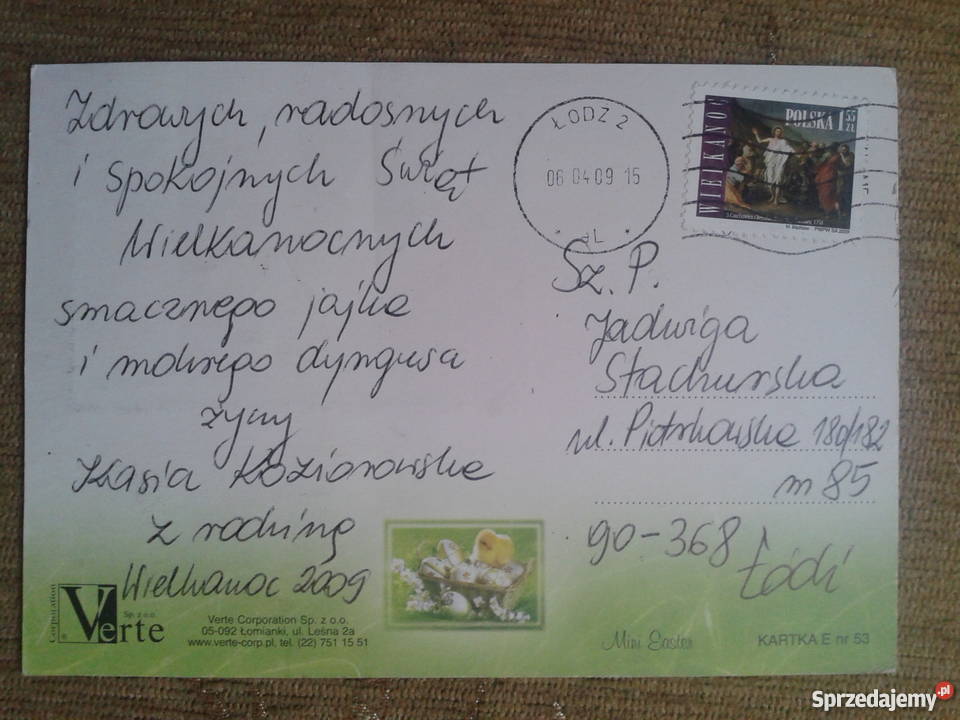 Zdrowych, radosnych
i spokojnych Świąt
Wielkanocnych
smacznego jajka
i mokrego dyngusa
życzy
Kasia Koziorowska
z rodziną
Wielkanoc 2009
ŁODZ 2
06 04 09 15
POLSKA 1 55 ZŁ
WIELKANOC
Sz. P.
Jadwiga
Stachurska
ul. Piotrkowska 180/182
m 85
90-368 Łódź
Corporation
Sp. z o.o.
Verte
Verte Corporation Sp. z o.o.
05-092 Łomianki, ul. Leśna 2a
www.verte-corp.pl, tel. (22) 751 15 51
Mini Easter
KARTKA E nr 53
Sprzedajemy.pl